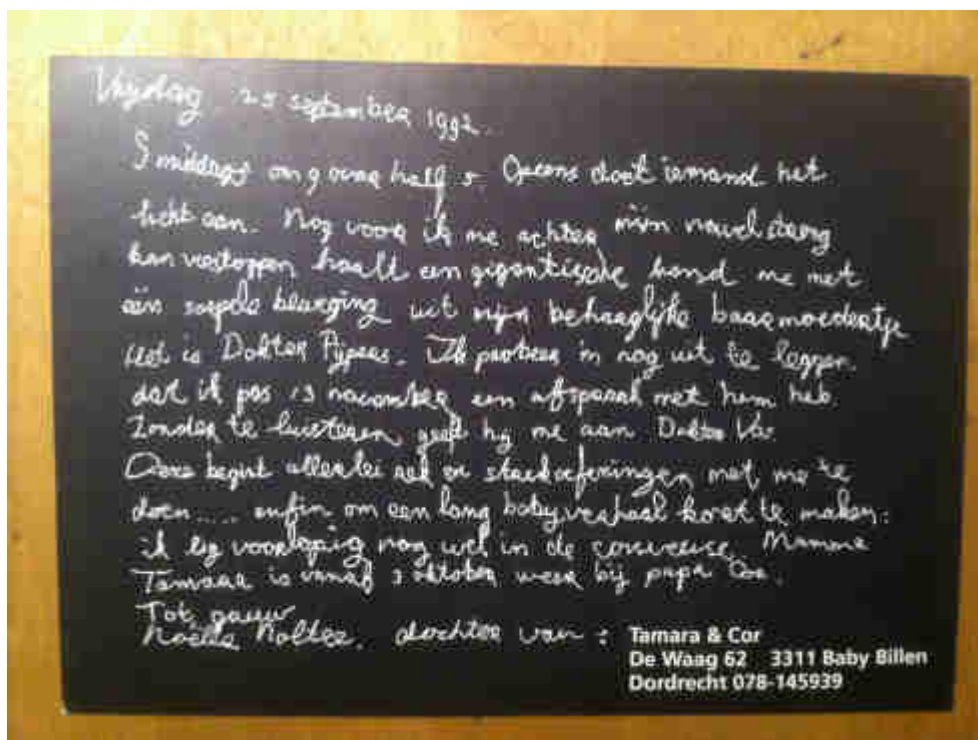 Vrijdag 25 september 1992.
S middags ongeveer half 5. Opeens doet iemand het
licht aan. Nog voor ik me achter mijn navelstreng
kan verstoppen haalt een gigantische hand me met
één soepele beweging uit mijn behaaglijke baarmoedertje
Het is Dokter Pijpers. Ik probeer m nog uit te leggen.
dat ik pas 13 november een afspraak met hem heb.
Zonder te luisteren geeft hij me aan Dokter
Deze begint allerlei rek en strekoefeningen met me te
doen..... enfin om een lang babyverhaal kort te maken:
ik lig voorlopig nog wel in de couveuse. Mamma
Tamara is vanaf 3 oktober weer bij papa Cor.
Tot gauw
dochter van :
Tamara & Cor
De Waag 62 3311 Baby Billen
Dordrecht 078-145939